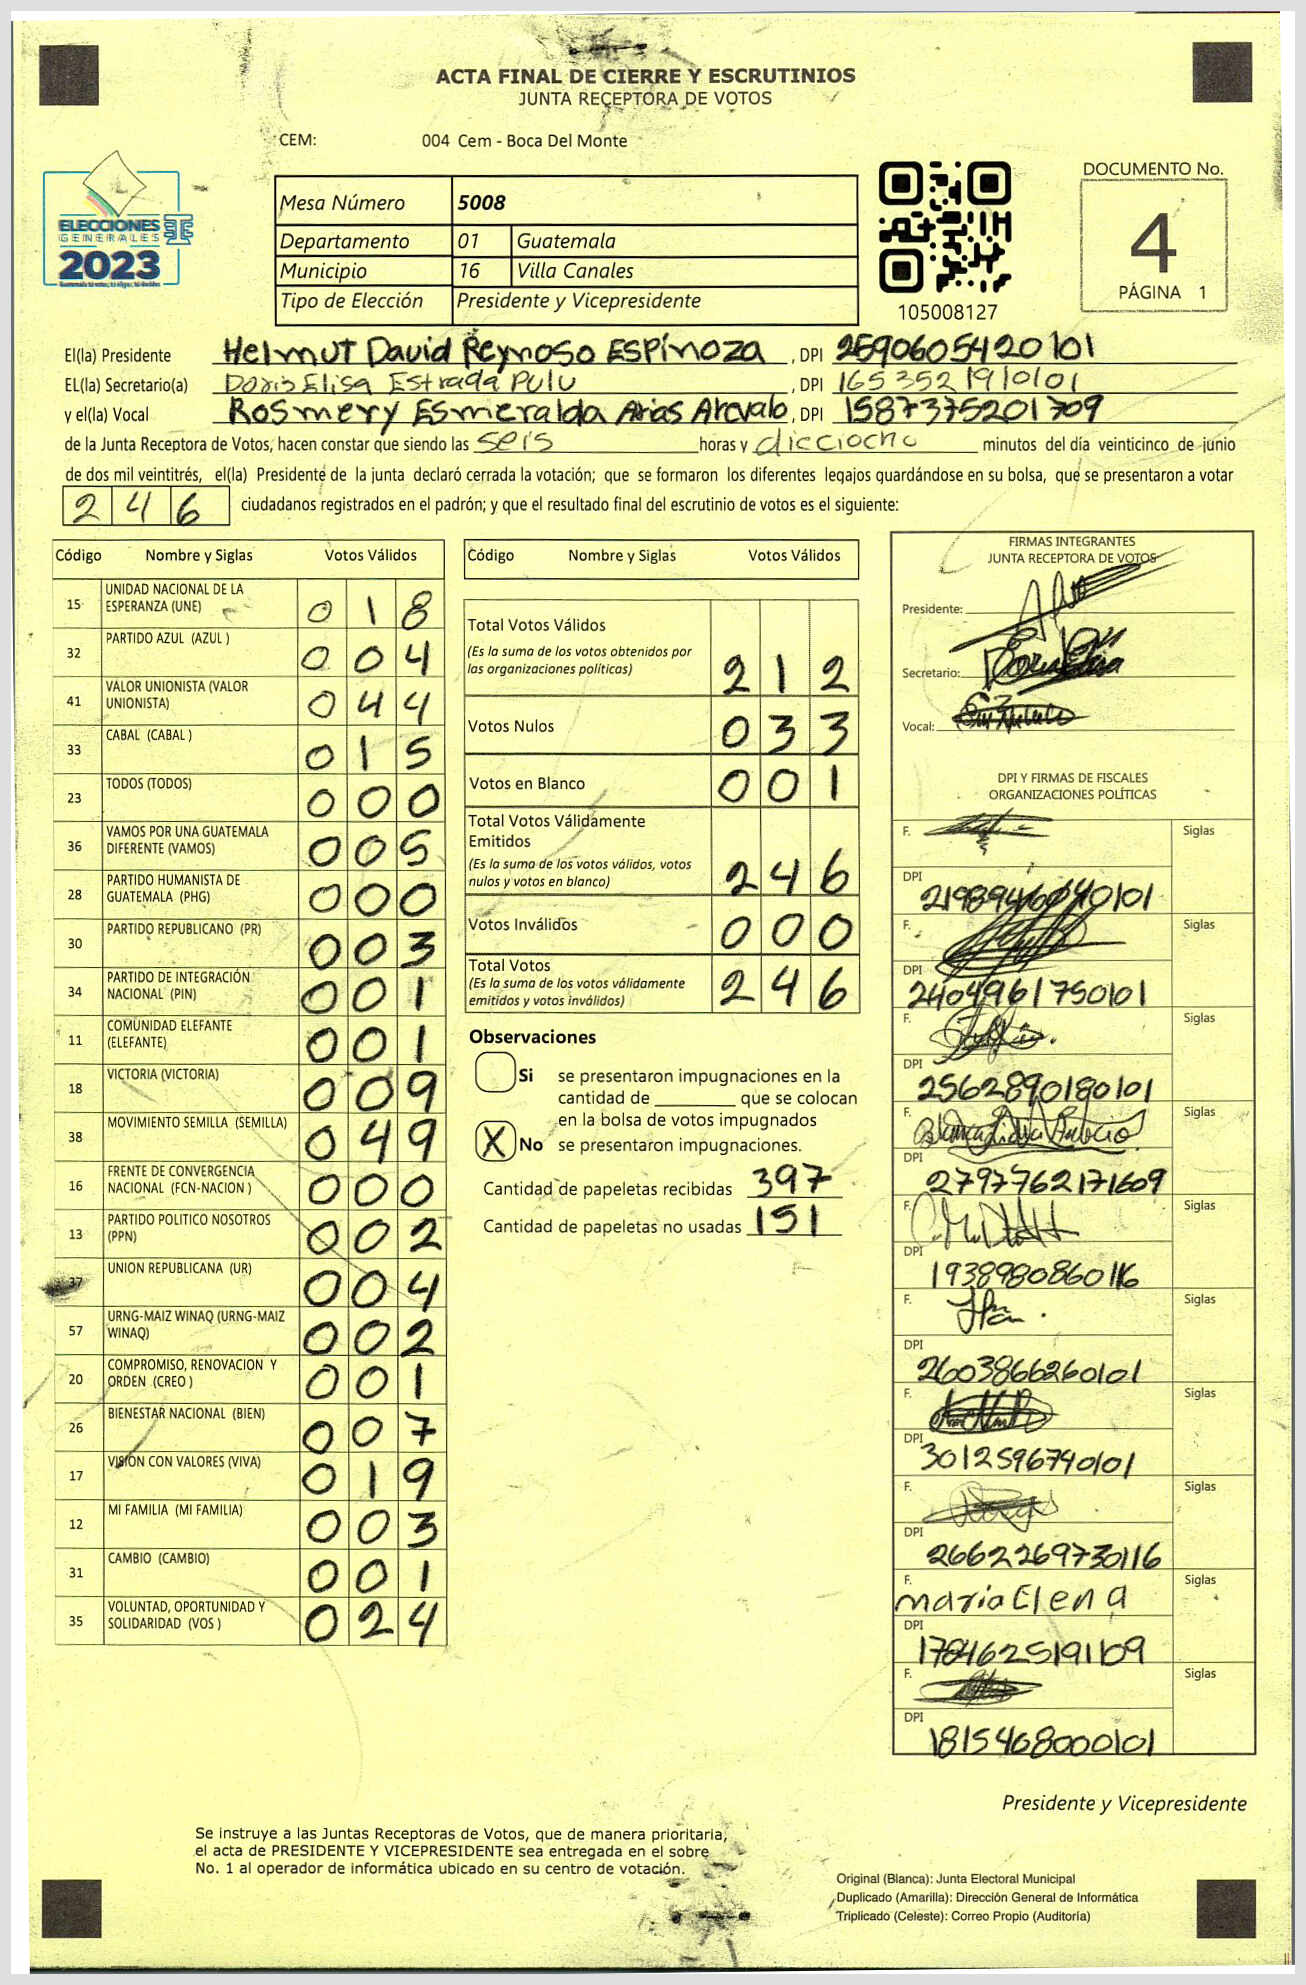 ACTA FINAL DE CIERRE Y ESCRUTINIOS
JUNTA RECEPTORA DE VOTOS
CEM: 004 Cem - Boca Del Monte
ELECCIONES
GENERALES
2023
Mesa Número 5008
Departamento 01 Guatemala
Municipio 16 Villa Canales
Tipo de Elección Presidente y Vicepresidente
105008127
DOCUMENTO No.
4
PÁGINA 1
El(la) Presidente Helmut David Reynoso Espinoza, DPI 2590605420101
EL(la) Secretario(a) Doris Elisa Estrada Pulu, DPI 1653521910101
y el(la) Vocal Rosmery Esmeralda Arias Arevalo, DPI 1587375201709
de la Junta Receptora de Votos, hacen constar que siendo las seis horas y dicciocho minutos del día veinticinco de junio
de dos mil veintitrés, el(la) Presidente de la junta declaró cerrada la votación; que se formaron los diferentes legajos guardándose en su bolsa, que se presentaron a votar
246 ciudadanos registrados en el padrón; y que el resultado final del escrutinio de votos es el siguiente:
Código Nombre y Siglas Votos Válidos
15 UNIDAD NACIONAL DE LA ESPERANZA (UNE) 018
32 PARTIDO AZUL (AZUL ) 004
41 VALOR UNIONISTA (VALOR UNIONISTA) 044
33 CABAL (CABAL ) 015
23 TODOS (TODOS) 000
36 VAMOS POR UNA GUATEMALA DIFERENTE (VAMOS) 005
28 PARTIDO HUMANISTA DE GUATEMALA (PHG) 000
30 PARTIDO REPUBLICANO (PR) 003
34 PARTIDO DE INTEGRACIÓN NACIONAL (PIN) 001
11 COMUNIDAD ELEFANTE (ELEFANTE) 001
18 VICTORIA (VICTORIA) 009
38 MOVIMIENTO SEMILLA (SEMILLA) 049
16 FRENTE DE CONVERGENCIA NACIONAL (FCN-NACION ) 000
13 PARTIDO POLITICO NOSOTROS (PPN) 002
37 UNION REPUBLICANA (UR) 004
57 URNG-MAIZ WINAQ (URNG-MAIZ WINAQ) 002
20 COMPROMISO, RENOVACION Y ORDEN (CREO ) 001
26 BIENESTAR NACIONAL (BIEN) 007
17 VISION CON VALORES (VIVA) 019
12 MI FAMILIA (MI FAMILIA) 003
31 CAMBIO (CAMBIO) 001
35 VOLUNTAD, OPORTUNIDAD Y SOLIDARIDAD (VOS ) 024
Código Nombre y Siglas Votos Válidos
Total Votos Válidos 212
(Es la suma de los votos obtenidos por
las organizaciones políticas)
Votos Nulos 033
Votos en Blanco 001
Total Votos Válidamente
Emitidos 246
(Es la suma de los votos válidos, votos
nulos y votos en blanco)
Votos Inválidos 000
Total Votos 246
(Es la suma de los votos válidamente
emitidos y votos inválidos)
Observaciones
Si se presentaron impugnaciones en la
cantidad de ________ que se colocan
en la bolsa de votos impugnados
X No se presentaron impugnaciones.
Cantidad de papeletas recibidas 397
Cantidad de papeletas no usadas 151
FIRMAS INTEGRANTES
JUNTA RECEPTORA DE VOTOS
Presidente:
Secretario:
Vocal:
DPI Y FIRMAS DE FISCALES
ORGANIZACIONES POLÍTICAS
F. Siglas
DPI
2198946040101
F. Siglas
DPI
2404961750101
F. Siglas
DPI
2562890180101
F. Siglas
DPI
2797762171609
F. Siglas
DPI
1938980860116
F. Siglas
DPI
2603866260101
F. Siglas
DPI
3012596740101
F. Siglas
DPI
2662269730116
F. maria Elena Siglas
DPI
1784625191109
F. Siglas
DPI
1815468000101
Presidente y Vicepresidente
Se instruye a las Juntas Receptoras de Votos, que de manera prioritaria,
el acta de PRESIDENTE Y VICEPRESIDENTE sea entregada en el sobre
No. 1 al operador de informática ubicado en su centro de votación.
Original (Blanca): Junta Electoral Municipal
Duplicado (Amarilla): Dirección General de Informática
Triplicado (Celeste): Correo Propio (Auditoría)